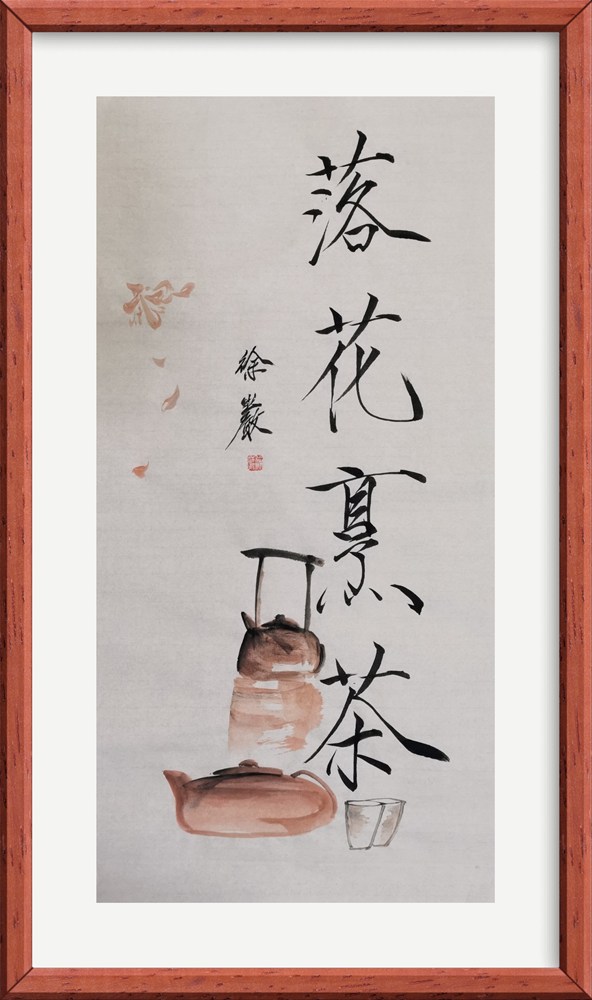 落花烹茶
徐巖